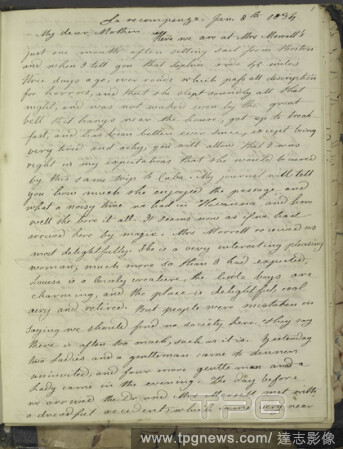 1
La recompenza. Jan. 8th 1834
My dear Mother, Here we are at Mrs Morrell's
just one month after setting sail from Boston
and when I tell you that Sophia rode 45 miles
three days ago, over roads which pass all description
for horrors, and that she slept soundly all that
night, and was not waked even by the great
bell that hangs near the house, got up to break-
fast, and has been better ever since, except being
very tired and achy, you will allow that I was
right in my expectations that she would be cured
by this same trip to Cuba. My journal will tell
you how much she enjoyed the passage, and
what a noisy time we had in Havanna, and how
well she bore it all. It seems now as if we had
arrived here by magic. Mrs Morrell received us
most delightfully. She is a very interesting pleasing
woman, much more so than I had expected.
Louisa is a lovely creature, the little boys are
charming, and the place is delightful, cool
airy and retired. But people were mistaken in
saying we should find no society here. They say
there is often too much, such as it is. Yesterday
two ladies and a gentleman came to dinner
uninvited, and four more gentlemen and a
lady came in the evening. The day before
we arrived the Dr. and Mrs Morrell met with
a dreadful accident, which came very near
TPG
www.tpgnews.com / 達志影像